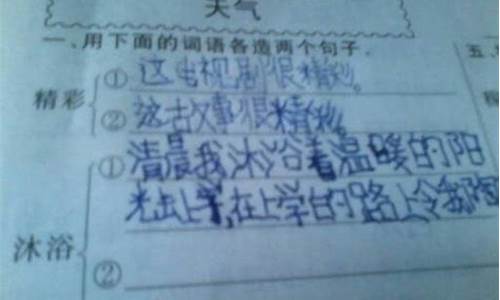 天气
一、用下面的词语各造两个句子. 五、
① 这电视剧很精彩。
精彩
② 这故事很精彩。
① 清晨我沐浴着温暖的阳
光去上学,在上学的路上令我陶
沐浴
②